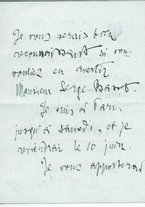 Je vous serais bien
reconnaissant si vous
vouliez en avertir
Monsieur Serge
Je suis à Paris
jusqu'à samedi, et je
reviendrai le 10 juin.
Je vous apporterai